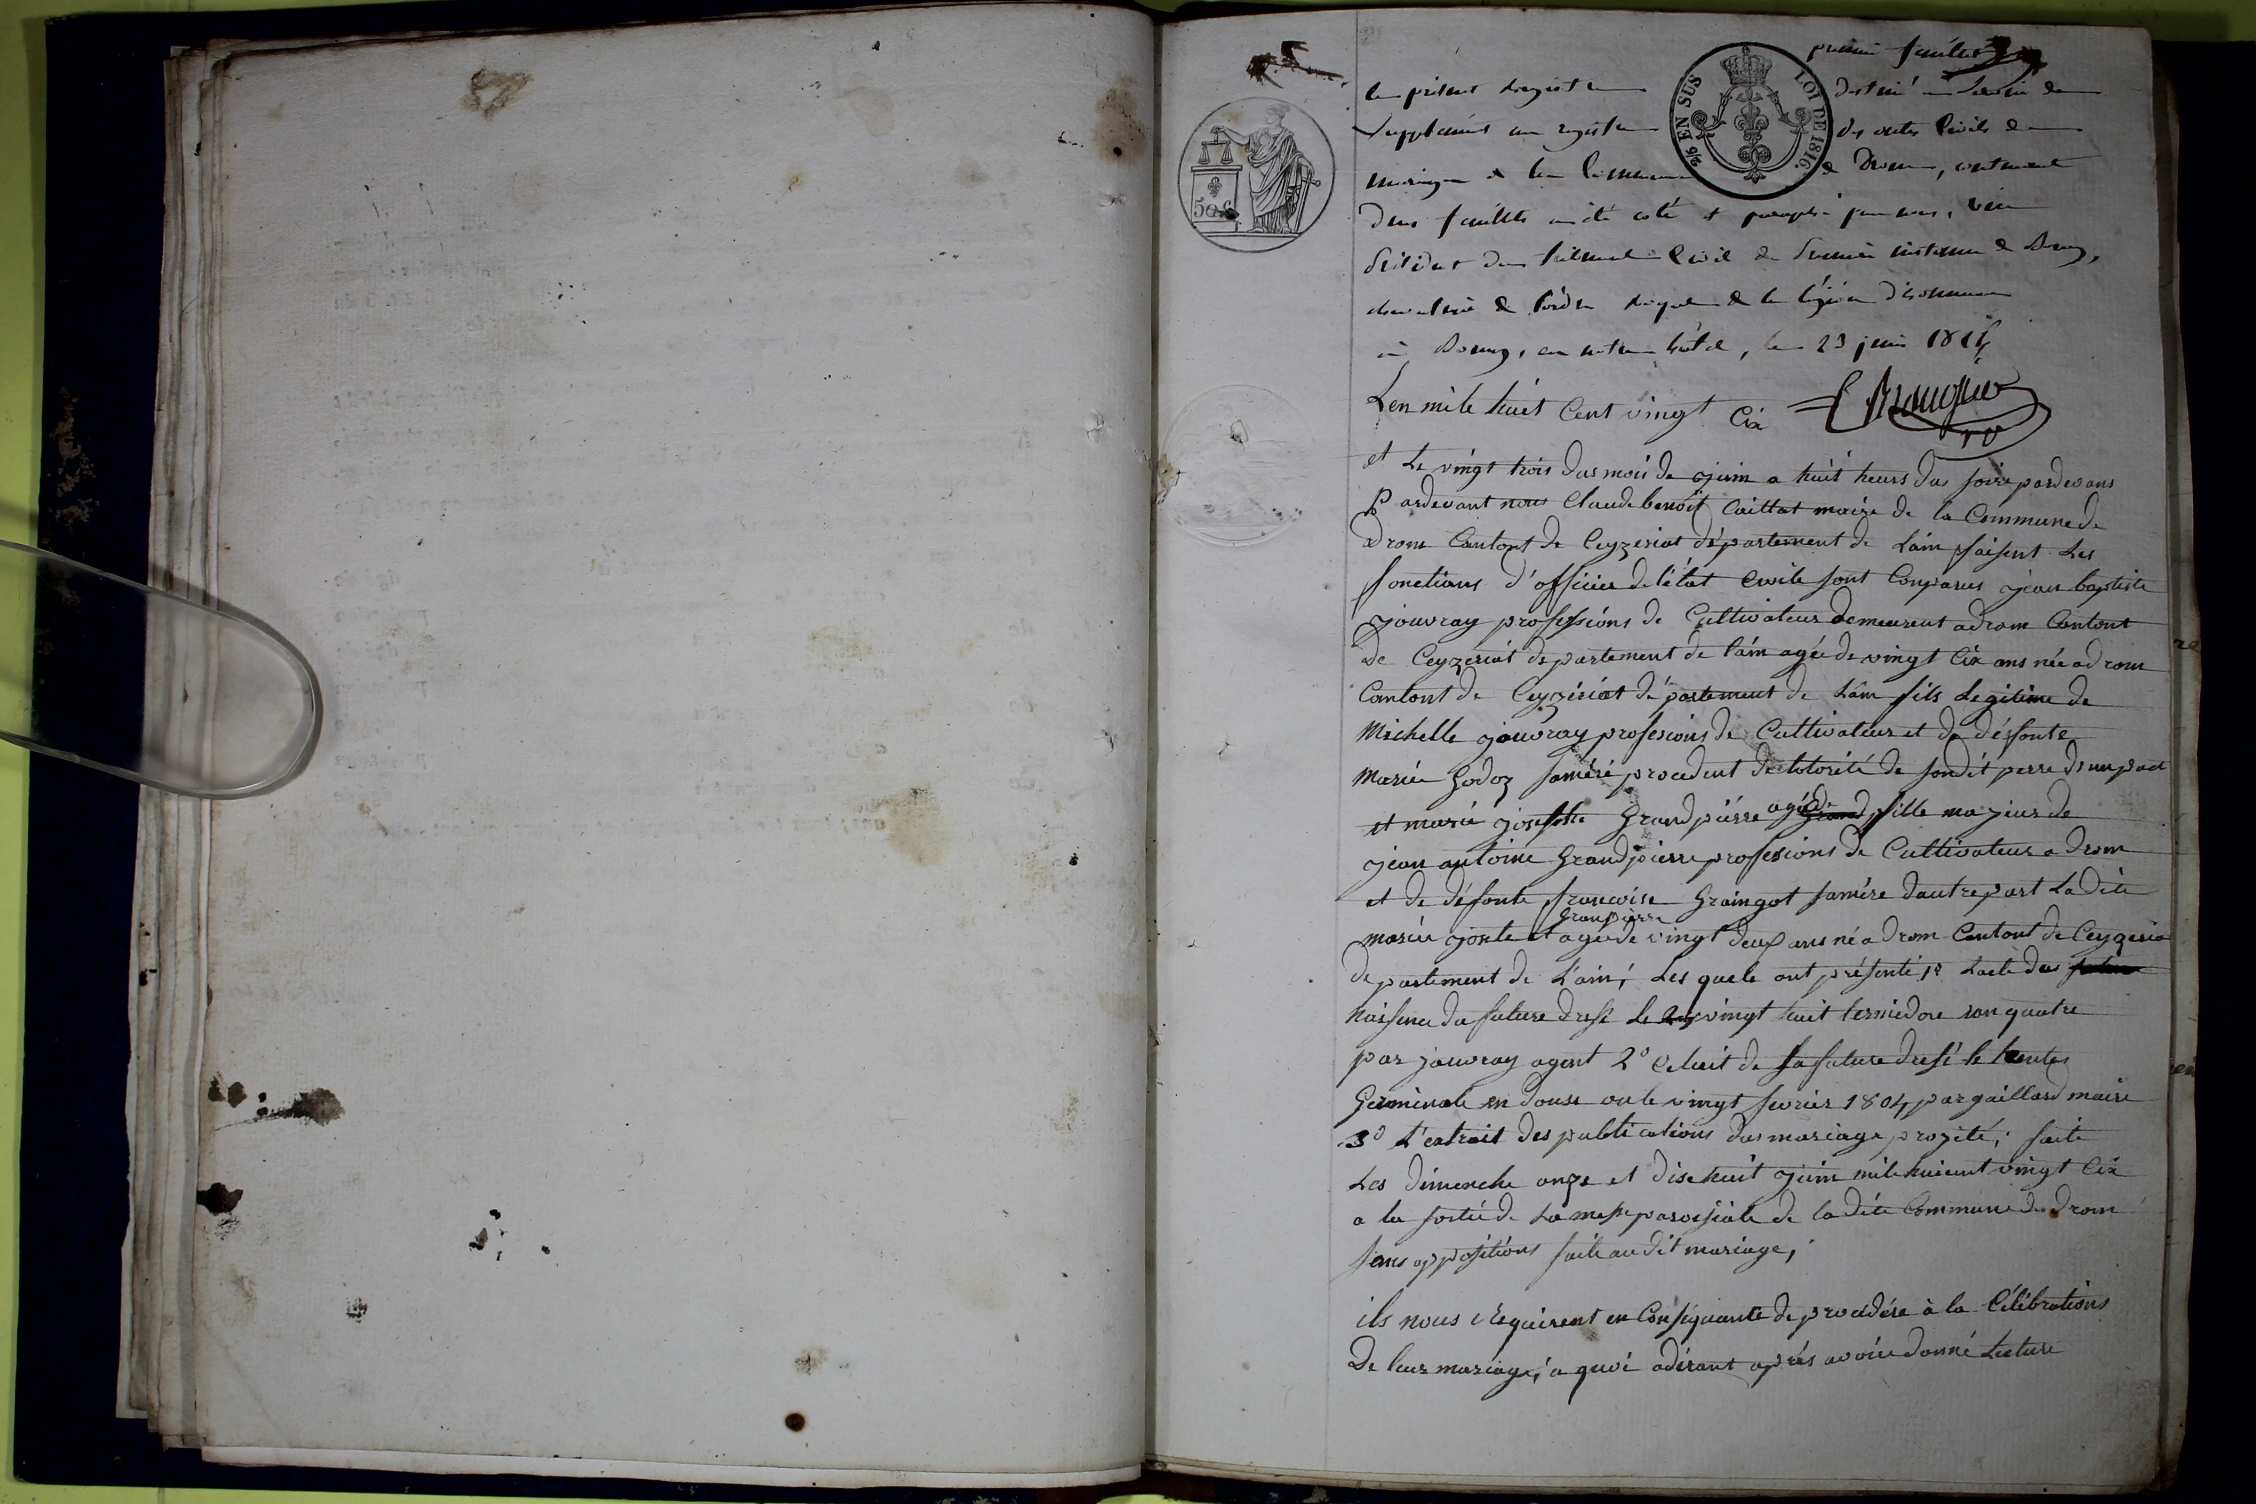 premier feuillet
le présent registre destiné à servir de
supplément au registre des actes civils de
mariage de la commune de Drom, contenant
deux feuillets a été coté et paraphé par nous, vice
président du tribunal civil de première instance de Bourg,
chevalier de l'ordre royal de la légion d'honneur
à Bourg, en notre hôtel, le 23 juin
5/2 EN SUS LOI DE 1816.
50 C
L'en mile huit Cent vingt Cix
et Le vingt trois dus mois de gjuin a huit heurs dus soire pardevans
Pardevant nous Claude benoit Caillat maire de la Commune de
drom Cantont de Ceyzeriat département de L'ain faisent Les
fonctions d'officier de l'état Civile sont Conparus gjean baptiste
gjouvray profession de Cultivateur demeurent adrom Cantont
de Ceyzeriat departement de l'ain agée de vingt Cix ans née adrom
Cantont de Ceyzériat département de Lain fils Legitime de
Michelle gjouvray profesions de Cultivateur et de défonte
Mariée Godoz saméré procedent de lotorité de sondit perre d'une part
et marié gjosephte Grandpiérre agéde Grand fille magieur de
gjean antoine Grandpierre profesions de Cultivateur a drom
et de défonte francoise Graingot samére dautre part Ladite
Granpierre
mariée gjoste et agée de vingt deux ans né a drom Cantont de Ceyzeria
departement de L'ain; Les quele ont présenté 1º Lacte dus future
naissence du future dressé Le vingt huit termidore l'an quatre
par jouvray agent 2º Celuit de La future dressé le trentes
Germinale en douse ou le vingt fevrier 1804 par gaillard maire
3º L'extrait des publications dus mariage progité; faite
Les dimenche onze et disehuit gjuin mile huicent vingt Cix
a la sortée de La messe paroissiale de la dite Commune de drom
sans oppositions faite audit mariage;
ils nous requirent en Conséquante de procédére à la Célébrations
De leur mariage; a quoi adérant aprés avoire donné Lecture